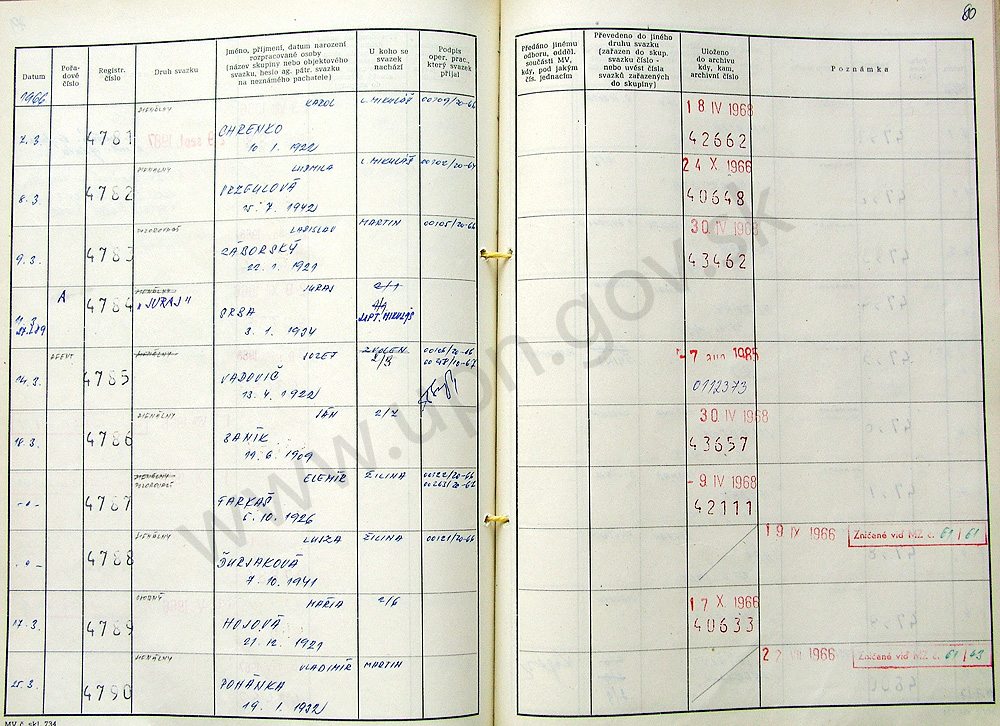 80
Datum
Pořadové číslo
Registr. číslo
Druh svazku
Jméno, příjmení, datum narození
rozpracované osoby
(název skupiny nebo objektového
svazku, heslo ag. pátr. svazku
na neznámého pachatele)
U koho se
svazek
nachází
Podpis
oper. prac.,
který svazek
přijal
Předáno jinému
odboru, odděl.
součásti MV,
kdy, pod jakým
čís. jednacím
Převedeno do jiného
druhu svazku
(zařazen do skup.
svazku číslo -
nebo uvést čísla
svazků zařazených
do skupiny)
Uloženo
do archivu
kdy, kam,
archivní číslo
Poznámka
1966
KAROL L. MIKULÁŠ 18 IV 1968
7.3. 4781 OHRENKO 42662
10 1. 1922
ĽUDMILA L. MIKULÁŠ 24 X 1966
8.3. 4782 40648
1942
LADISLAV MARTIN 00105/20-66 30 IV 1968
9.3. 4783 ZÁBORSKÝ 43462
22. 1. 1921
A JURAJ 2/1
4784 "JURAJ" ORSA
LIPT. MIKULÁŠ
3. 1. 1934
AGENT JOZEF ZVOLEN 7 aug 1985
14.3. 4785 VADOVIČ 2/3 0112373
13. 4. 1922
JÁN 2/2 30 IV 1968
18.3. 4786 43657
6. 1909
ELEMÍR ŽILINA 00122/20-66 - 9 IV 1968
-"- 4787 FARKAŠ 42111
6. 10. 1926
LUIZA ŽILINA 00121/20-66 19 IX 1966 Zničené viď MZ č. 61/61
-"- 4788 ĎURJAKOVÁ
7. 10. 1941
MÁRIA 2/6 17 X. 1966
17.3. 4789 HOJOVÁ 40633
21. 12. 1921
VLADIMÍR MARTIN 1966 Zničené viď MZ č. 61/63
25.3. 4790 POHÁNKA
19. 1. 1932
MV č. skl. 734
www.upn.gov.sk